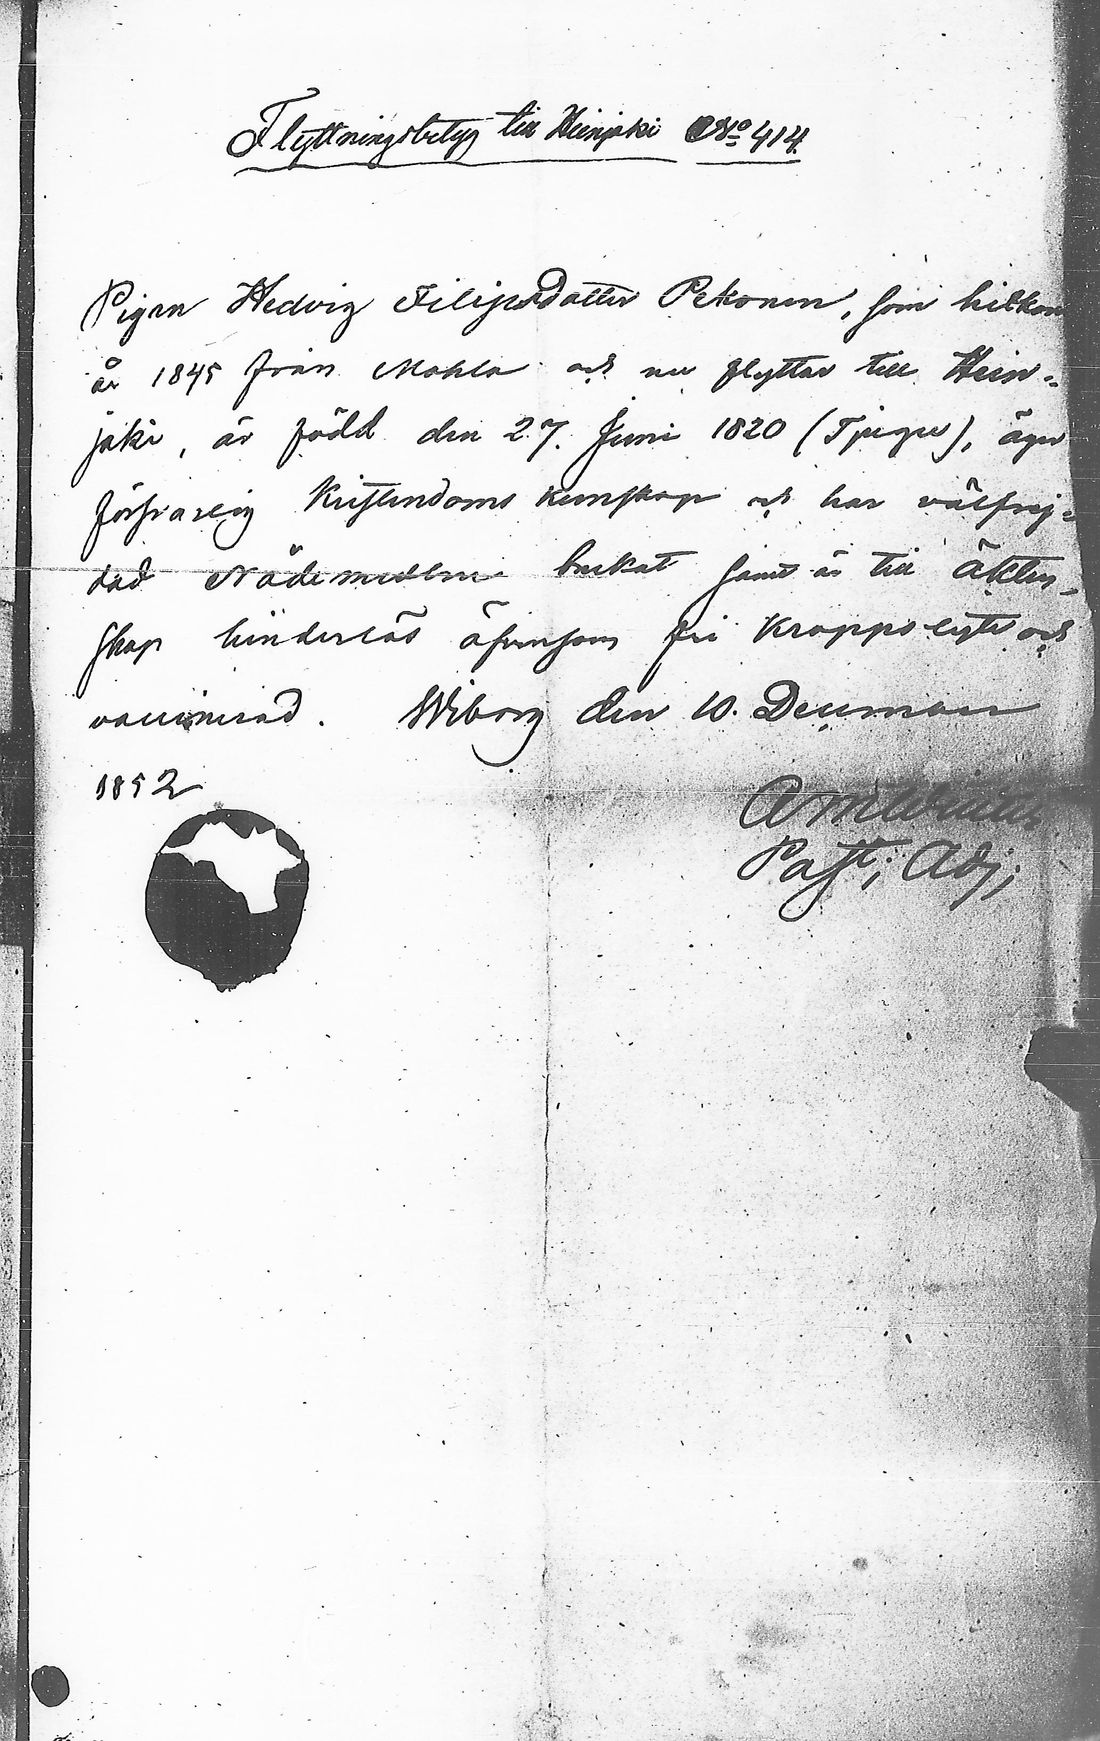 Flyttningsbetyg till Heinjoki No 414.
Pigan Hedvig Filipsdotter Pekonen, som hitkom
år 1845 från Mohla och nu flyttar till Hein-
joki, är född den 27. Juni 1820 (Tjugu), äger
försvarlig Kristendoms kunskap och har välfrej-
dad Nådemedlen brukat samt är till äkten-
skap hinderlös äfvensom fri Kroppslyte och
vaccinerad. Wiborg den 10. December
1852
Past; Adj;